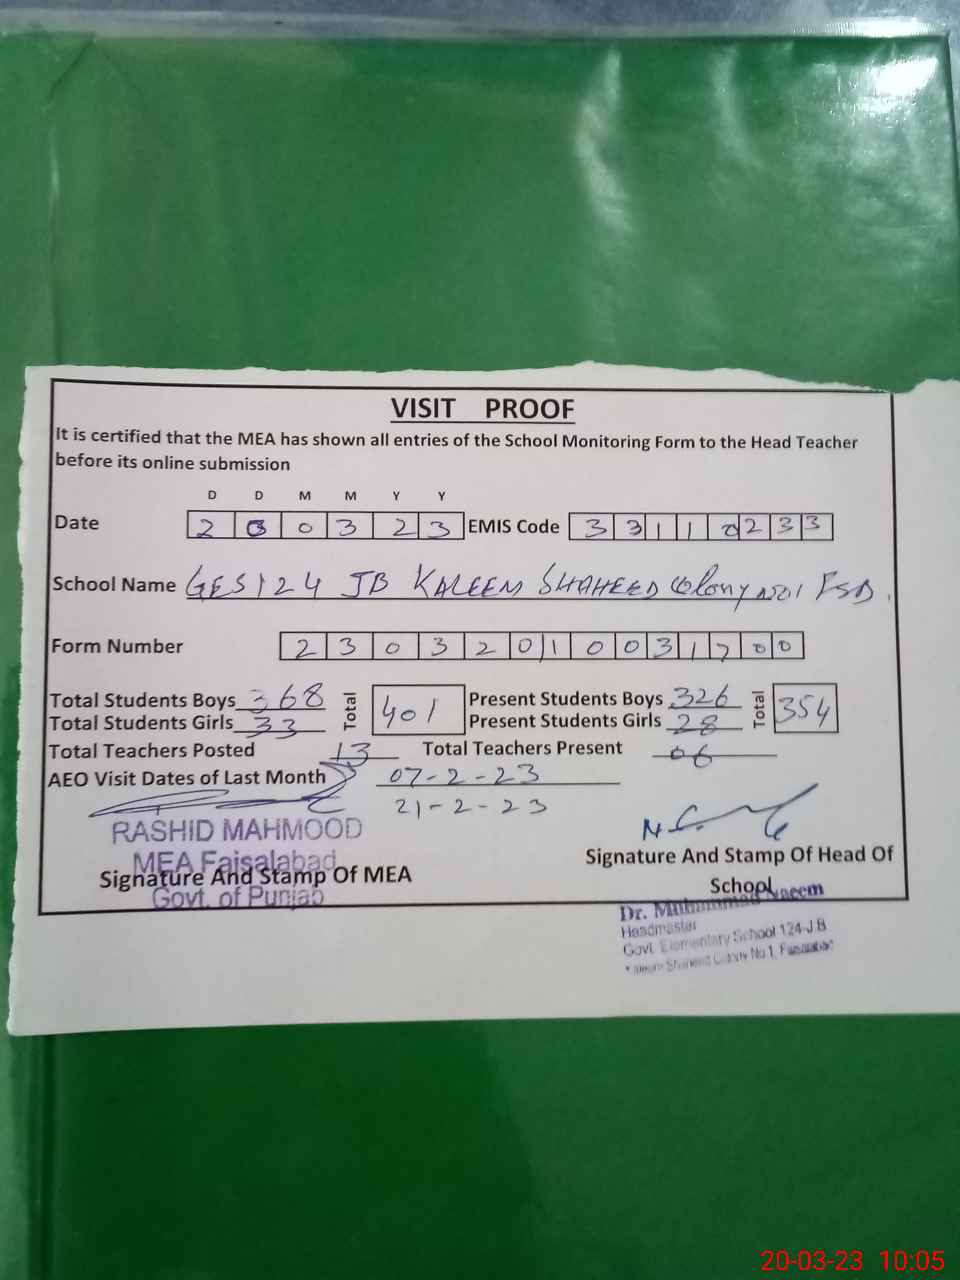 VISIT PROOF
It is certified that the MEA has shown all entries of the School Monitoring Form to the Head Teacher
before its online submission
D D M M Y Y
Date 2 0 0 3 2 3 EMIS Code 3 3 1 1 0 2 3 3
School Name GES 124 JB KALEEM SHAHEED Colony No1 FSD.
Form Number 2 3 0 3 2 0 1 0 0 3 1 7 0 0
Total Students Boys 368 Total 401 Present Students Boys 326 Total 354
Total Students Girls 33 Present Students Girls 28
Total Teachers Posted 13 Total Teachers Present 06
AEO Visit Dates of Last Month 07-2-23
21-2-23
RASHID MAHMOOD
MEA Faisalabad
Signature And Stamp Of MEA
Govt. of Punjab
Signature And Stamp Of Head Of
School
Dr. Muhammad Naeem
Headmaster
Govt. Elementary School 124-J.B
Kaleem Shaheed Colony No.1, Faisalabad
20-03-23 10:05